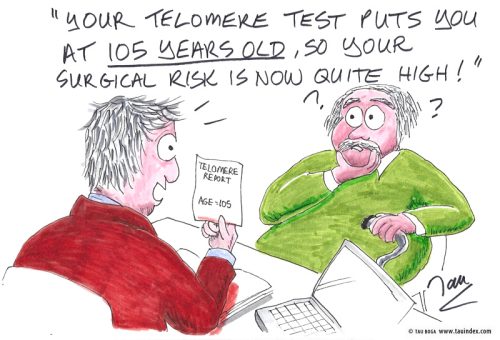 "YOUR TELOMERE TEST PUTS YOU
AT 105 YEARS OLD, SO YOUR
SURGICAL RISK IS NOW QUITE HIGH!"
? ?
TELOMERE
REPORT
AGE=105
Tau
© TAU BOGA www.tauindex.com